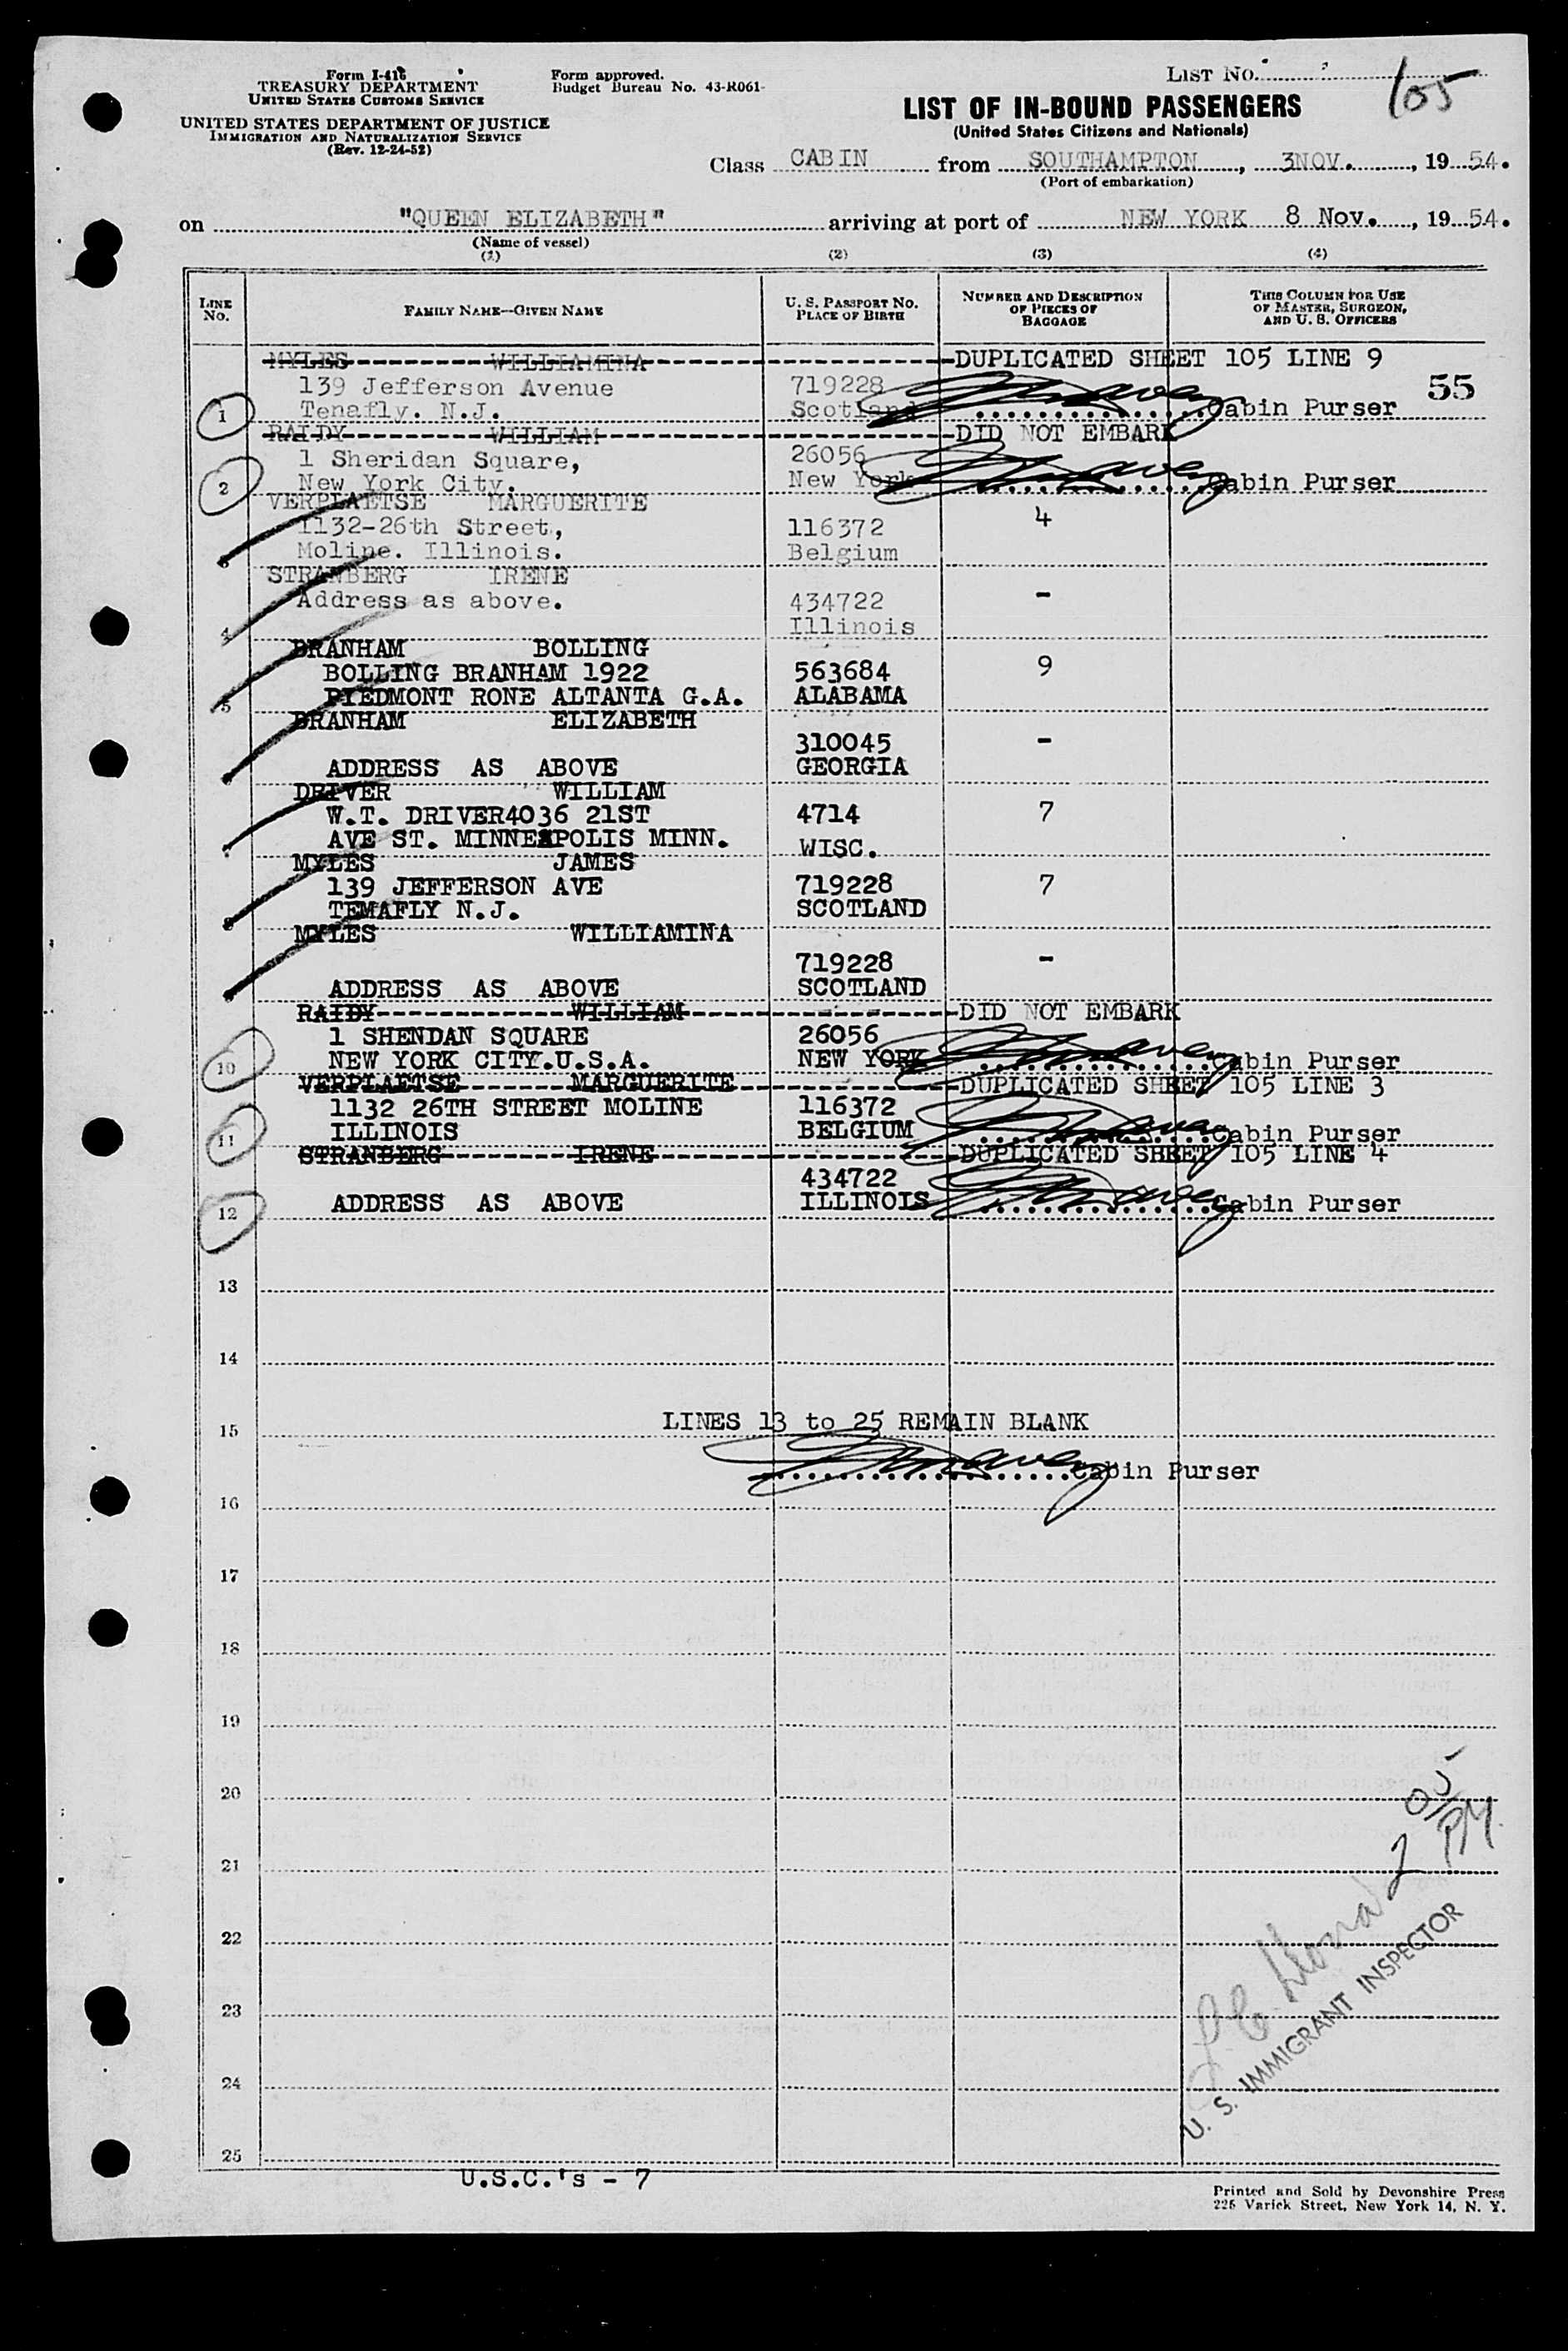 Form I-416
TREASURY DEPARTMENT
UNITED STATES CUSTOMS SERVICE
UNITED STATES DEPARTMENT OF JUSTICE
IMMIGRATION AND NATURALIZATION SERVICE
(Rev. 12-24-52)
Form approved.
Budget Bureau No. 43-R061-
LIST NO. 105
LIST OF IN-BOUND PASSENGERS
(United States Citizens and Nationals)
Class CABIN from SOUTHAMPTON, 3NOV., 1954.
(Port of embarkation)
on "QUEEN ELIZABETH" arriving at port of NEW YORK 8 Nov., 1954.
(Name of vessel)
(1) (2) (3) (4)
LINE NO.
FAMILY NAME—GIVEN NAME
U. S. PASSPORT NO.
PLACE OF BIRTH
NUMBER AND DESCRIPTION
OF PIECES OF
BAGGAGE
THIS COLUMN FOR USE
OF MASTER, SURGEON,
AND U. S. OFFICERS
MYLES WILLIAMINA DUPLICATED SHEET 105 LINE 9
139 Jefferson Avenue 719228 55
1 Tenafly. N.J. Scotland Cabin Purser
RAIDY WILLIAM DID NOT EMBARK
1 Sheridan Square, 26056
2 New York City. New York Cabin Purser
VERPLAETSE MARGUERITE 4
1132-26th Street, 116372
3 Moline. Illinois. Belgium
STRANBERG IRENE
Address as above. 434722 -
4 Illinois
BRANHAM BOLLING
BOLLING BRANHAM 1922 563684 9
5 PIEDMONT RONE ALTANTA G.A. ALABAMA
BRANHAM ELIZABETH
310045 -
ADDRESS AS ABOVE GEORGIA
DRIVER WILLIAM
W.T. DRIVER4036 21ST 4714 7
AVE ST. MINNEAPOLIS MINN. WISC.
MYLES JAMES
139 JEFFERSON AVE 719228 7
TEMAFLY N.J. SCOTLAND
MYLES WILLIAMINA
719228 -
ADDRESS AS ABOVE SCOTLAND
RAIDY WILLIAM DID NOT EMBARK
1 SHENDAN SQUARE 26056
10 NEW YORK CITY.U.S.A. NEW YORK Cabin Purser
VERPLAETSE MARGUERITE DUPLICATED SHEET 105 LINE 3
1132 26TH STREET MOLINE 116372
11 ILLINOIS BELGIUM Cabin Purser
STRANBERG IRENE DUPLICATED SHEET 105 LINE 4
434722
12 ADDRESS AS ABOVE ILLINOIS Cabin Purser
13
14
LINES 13 to 25 REMAIN BLANK
15
Cabin Purser
16
17
18
19
20
2 05/PM.
21
22
U. S. IMMIGRANT INSPECTOR
23
24
25
U.S.C.'s - 7
Printed and Sold by Devonshire Press
225 Varick Street, New York 14, N. Y.